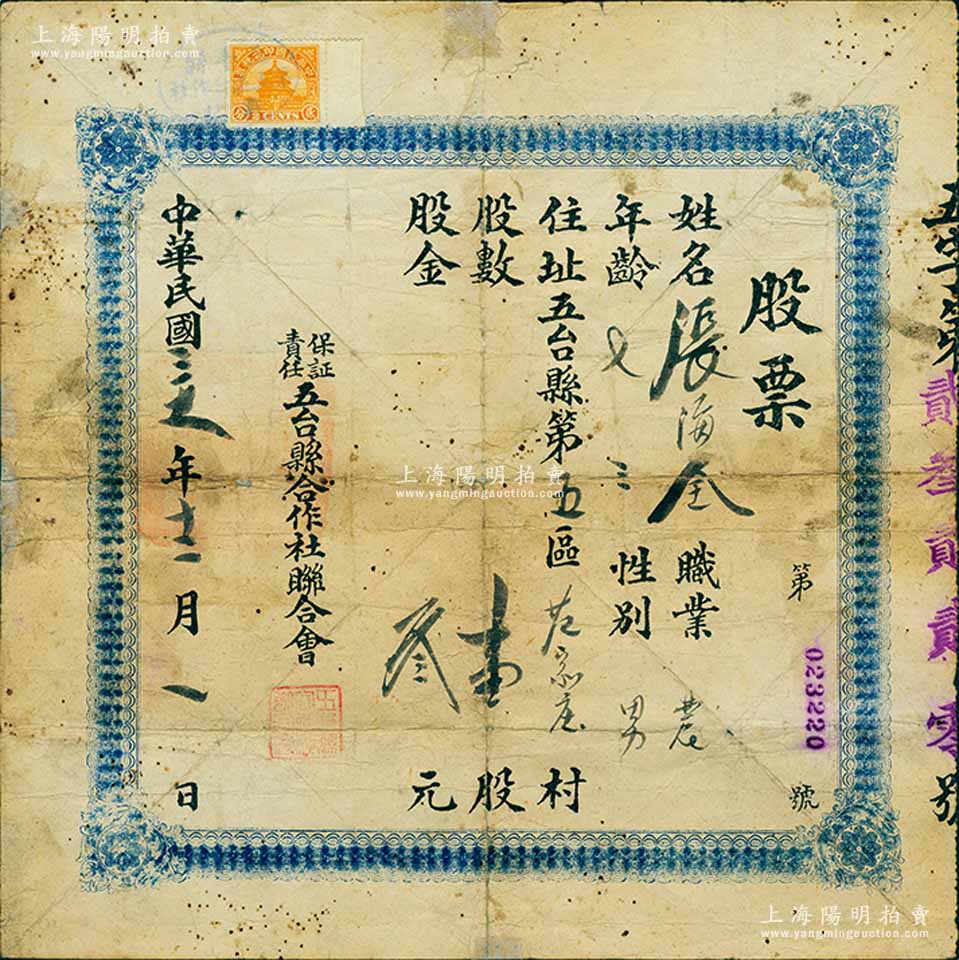 上海陽明拍賣
www.yangmingauction.com
2 CENTS
五字第貳叁貳貳零號
股票
第 023220 號
姓名 張海全 職業 農
年齡 七三 性別 男
住址 五台縣第五區 左家庄 村
股數 壹 股
股金 叁 元
保証責任五台縣合作社聯合會
中華民國三五年十二月一日
上海陽明拍賣
www.yangmingauction.com
上海陽明拍賣
www.yangmingauction.com